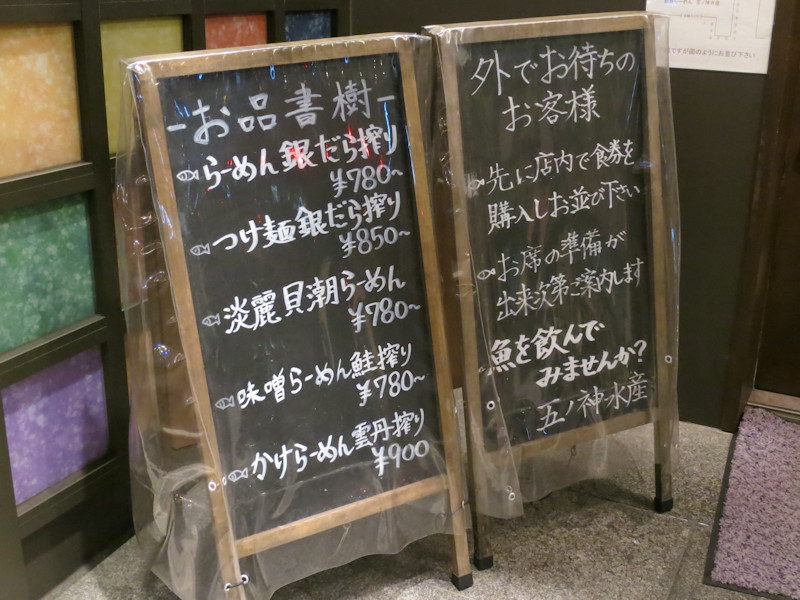 -お品書樹-
らーめん銀だら搾り
¥780~
つけ麺銀だら搾り
¥850~
淡麗貝潮らーめん
¥780~
味噌らーめん鮭搾り
¥780~
かけらーめん雲丹搾り
¥900
外でお待ちの
お客様
先に店内で食券を
購入しお並び下さい
お席の準備が
出来次第ご案内します
魚を飲んで
みませんか?
五ノ神水産
ですが図のようにお並び下さい。